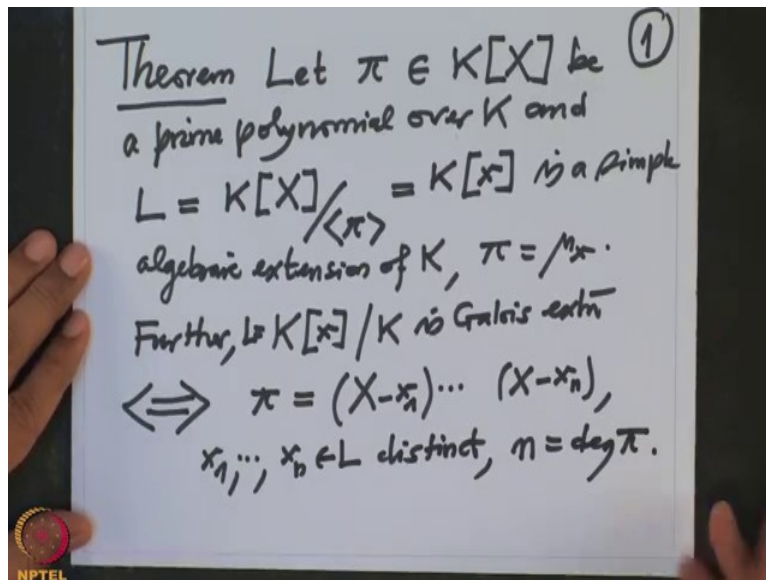 Theorem Let π ∈ K[X] be ①
a prime polynomial over K and
L = K[X]/<π> = K[x] is a simple
algebraic extension of K, π = μx.
Further, L=K[x]/K is Galois extn
⟺ π = (X-x1)⋯ (X-xn),
x1,⋯, xn ∈ L distinct, n = deg π.
NPTEL